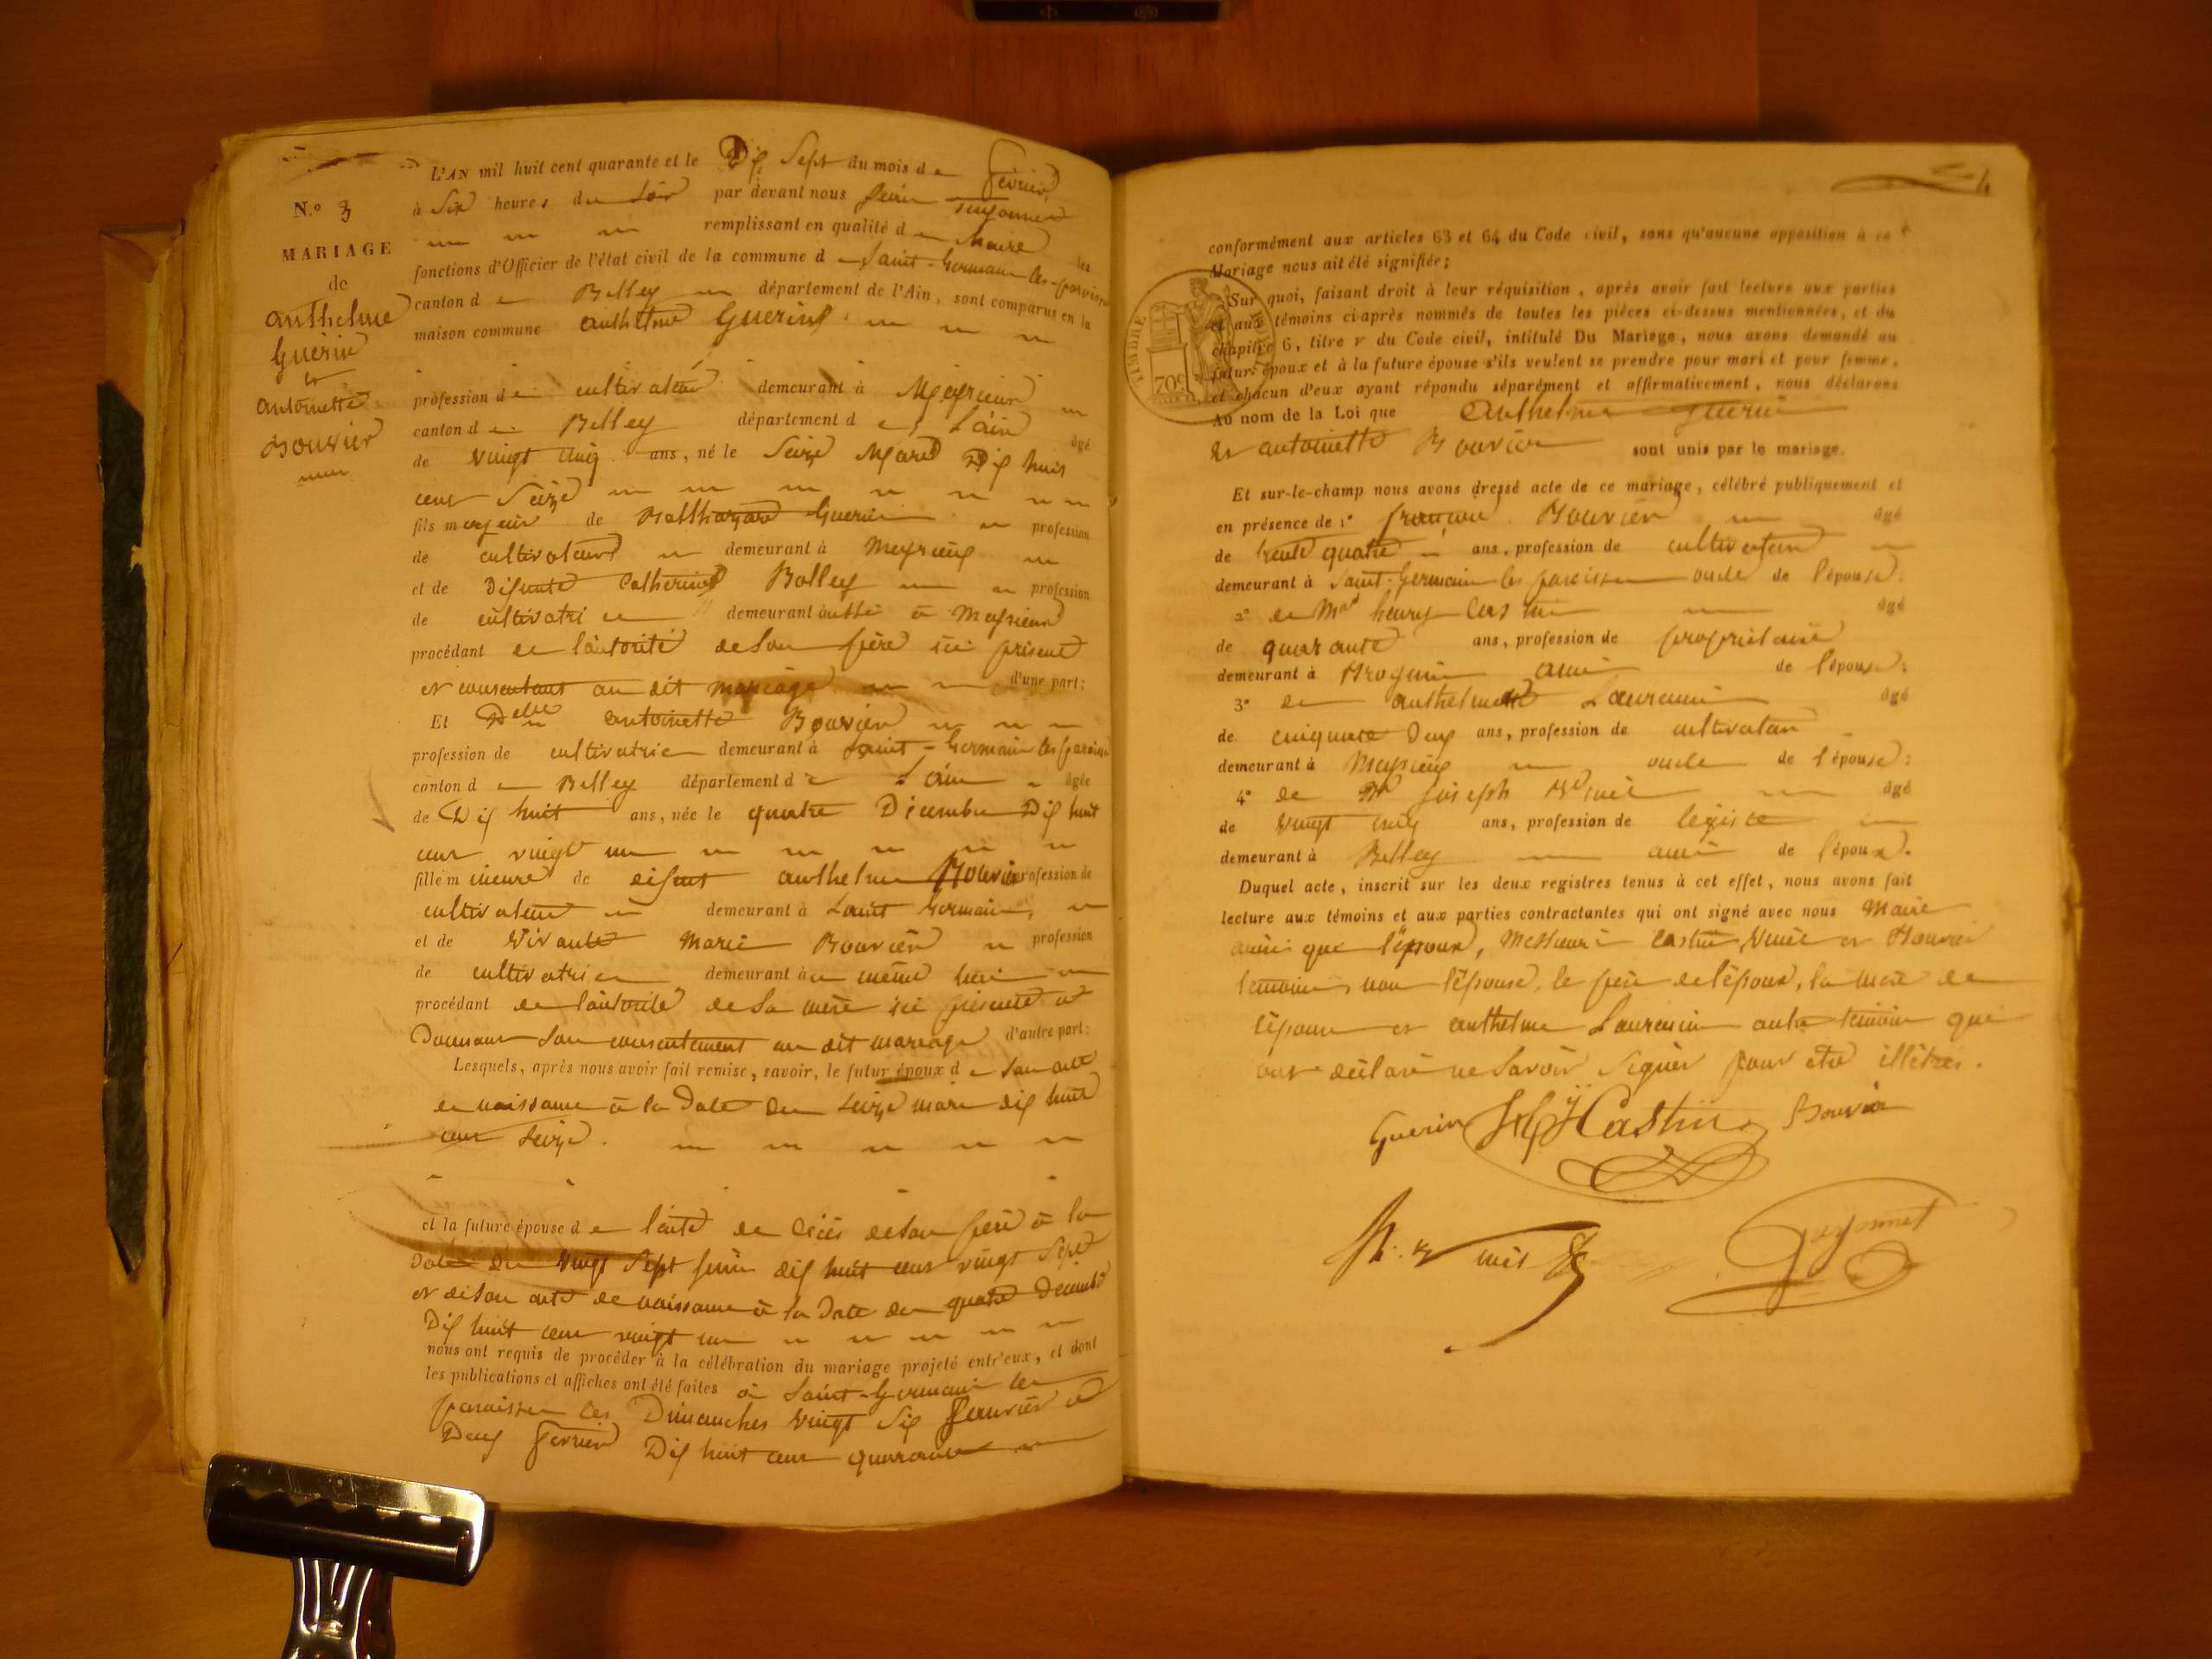 N.o 3
MARIAGE
de
anthelme
Guerin
et
antoinette
Bouvier
L'AN mil huit cent quarante et le Dix Sept du mois de février
à Six heures du soir par devant nous
remplissant en qualité de Maire les
fonctions d'Officier de l'état civil de la commune de Saint-Germain les-paroisses
canton de Belley département de l'Ain, sont comparus en la
maison commune anthelme Guerin
profession de cultivateur demeurant à Meyrieux
canton de Belley département de L'ain âgé
de vingt ans, né le Seize Mars Dix huit
cent Seize
fils majeur de Balthazard Guerin profession
de cultivateur demeurant à Meyrieux
et de Défunte Catherine Bolley profession
de cultivatrice demeurant aussi à Meyrieux
procédant de l'autorité de son père ici présent
et consentant au dit mariage d'une part;
Et Delle antoinette Bouvier
profession de cultivatrice demeurant à Saint-Germain les paroisses
canton de Belley département de L'ain âgée
de Dix huit ans, née le quatre Décembre Dix huit
cent vingt un
fille mineure de défunt anthelme Bouvier profession de
cultivateur demeurant à Saint Germain
et de vivante Marie Bouvier profession
de cultivatrice demeurant au même lieu
procédant de l'autorité de sa mère ici présente et
Donnant son consentement au dit mariage d'autre part;
Lesquels, après nous avoir fait remise, savoir, le futur époux de son acte
de naissance à la Date du seize mars dix huit
cent seize.
et la future épouse de l'acte de décès de son père à la
Date du vingt Sept juin dix huit cent vingt Sept
et de son acte de naissance à la Date du quatre Décembre
Dix huit cent vingt un
nous ont requis de procéder à la célébration du mariage projeté entr'eux, et dont
les publications et affiches ont été faites à Saint-Germain les
paroisses les Dimanches vingt six Janvier et
Deux février Dix huit cent quarante
4
conformément aux articles 63 et 64 du Code civil, sans qu'aucune opposition à ce
Mariage nous ait été signifiée;
TIMBRE ROYAL
70c
Sur quoi, faisant droit à leur réquisition, après avoir fait lecture aux parties
et aux témoins ci-après nommés de toutes les pièces ci-dessus mentionnées, et du
chapitre 6, titre v du Code civil, intitulé Du Mariage, nous avons demandé au
futur époux et à la future épouse s'ils veulent se prendre pour mari et pour femme,
et chacun d'eux ayant répondu séparément et affirmativement, nous déclarons
Au nom de la Loi que Anthelme Guerin
et antoinette Bouvier sont unis par le mariage.
Et sur-le-champ nous avons dressé acte de ce mariage, célébré publiquement et
en présence de 1o françois Bouvier âgé
de trente quatre ans, profession de cultivateur
demeurant à Saint-Germain les paroisses oncle de l'épouse;
2o de Mr henry Castin âgé
de quarante ans, profession de propriétaire
demeurant à ami de l'épouse;
3o de anthelme Laurencin âgé
de cinquante Deux ans, profession de cultivateur
demeurant à Meyrieux oncle de l'épouse;
4o de Mr joseph âgé
de vingt ans, profession de légiste
demeurant à Belley ami de l'époux.
Duquel acte, inscrit sur les deux registres tenus à cet effet, nous avons fait
lecture aux témoins et aux parties contractantes qui ont signé avec nous Maire
ainsi que l'époux, Messieurs Castin et Bouvier
témoins, non l'épouse, le père de l'époux, la mère de
l'épouse et anthelme Laurencin autre témoin qui
ont déclaré ne savoir signer pour être illétrés.
Guerin Castin Bouvier